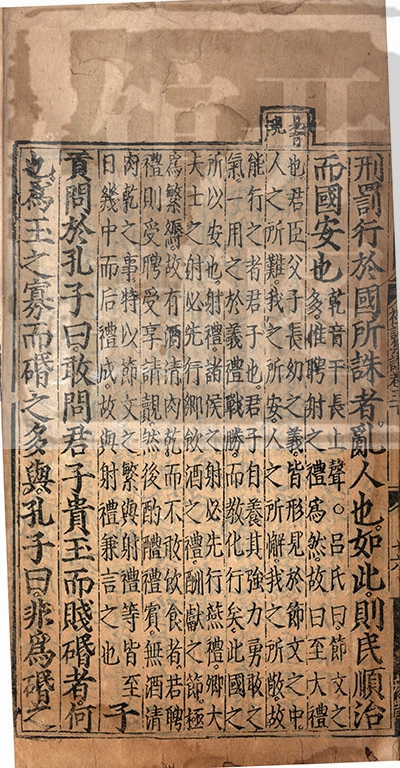 刑罰行於國所誅者亂人也如此則民順治
而國安也
乾音干長上聲○呂氏曰節文之
多惟聘射之禮爲然故曰至大禮
也君臣父子長幼之義皆形見於節文之中
人之所難我之所安人之所懈我之所敢故
能行之者君子也君子自養其強力勇敢之
氣一用之於義禮戰勝而敎化行矣此國之
所以安也射禮諸侯之射必先行燕禮卿大
夫士之射必先行鄉飲酒之禮酬獻之節極
爲繁縟故有酒清肉乾而不敢飲食者若聘
禮則受聘受享請覿然後酌醴禮賓無酒清
肉乾之事特以節文之繁與射禮等皆至
日幾中而后禮成故與射禮兼言之也
子
貢問於孔子曰敢問君子貴玉而賤碈者何
也爲玉之寡而碈之多與孔子曰非爲碈之